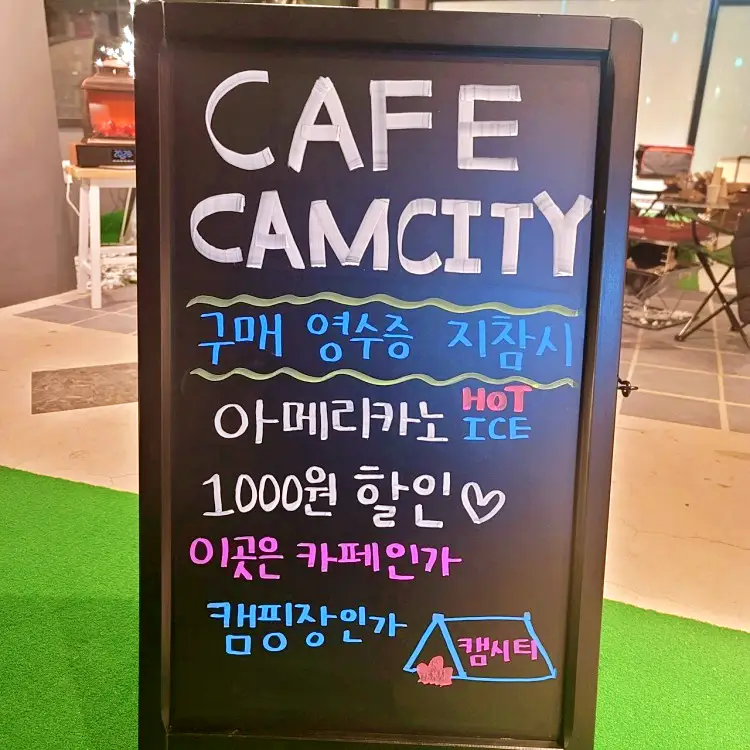 CAFE
CAMCITY
구매 영수증 지참시
아메리카노 HOT ICE
1000원 할인♡
이곳은 카페인가
캠핑장인가
캠시티